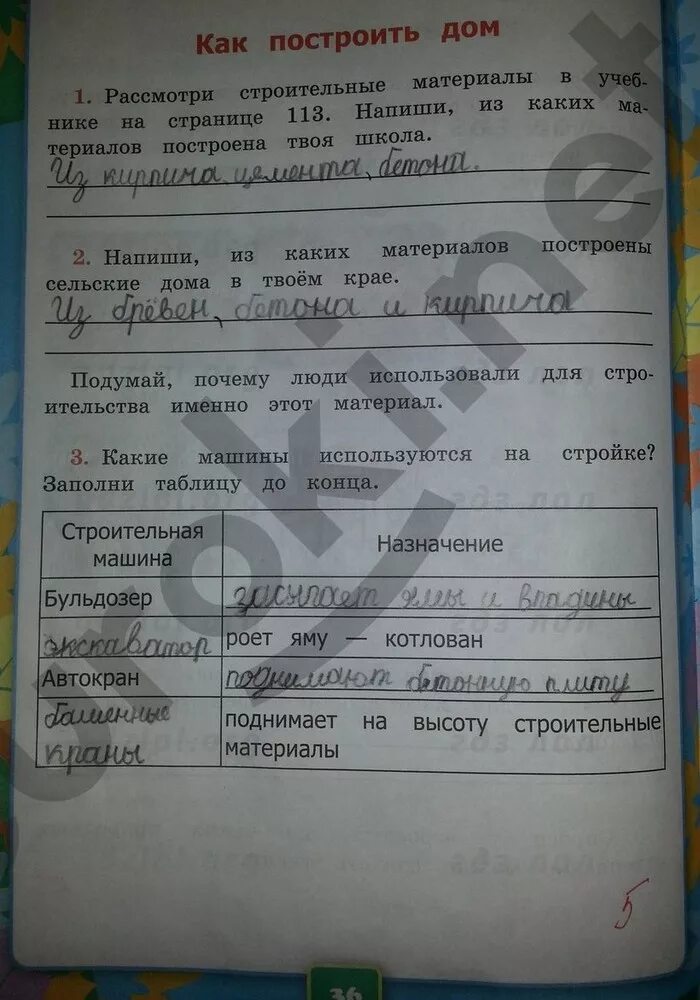 Как построить дом
1. Рассмотри строительные материалы в учеб-
нике на странице 113. Напиши, из каких ма-
териалов построена твоя школа.
Из кирпича цемента, бетона.
2. Напиши, из каких материалов построены
сельские дома в твоём крае.
Из брёвен, бетона и кирпича
Подумай, почему люди использовали для стро-
ительства именно этот материал.
3. Какие машины используются на стройке?
Заполни таблицу до конца.
Строительная
машина
Назначение
Бульдозер
засыпает ямы и впадины
экскаватор
роет яму — котлован
Автокран
поднимают бетонную плиту
башенные
краны
поднимает на высоту строительные
материалы
5
36
uroki.net